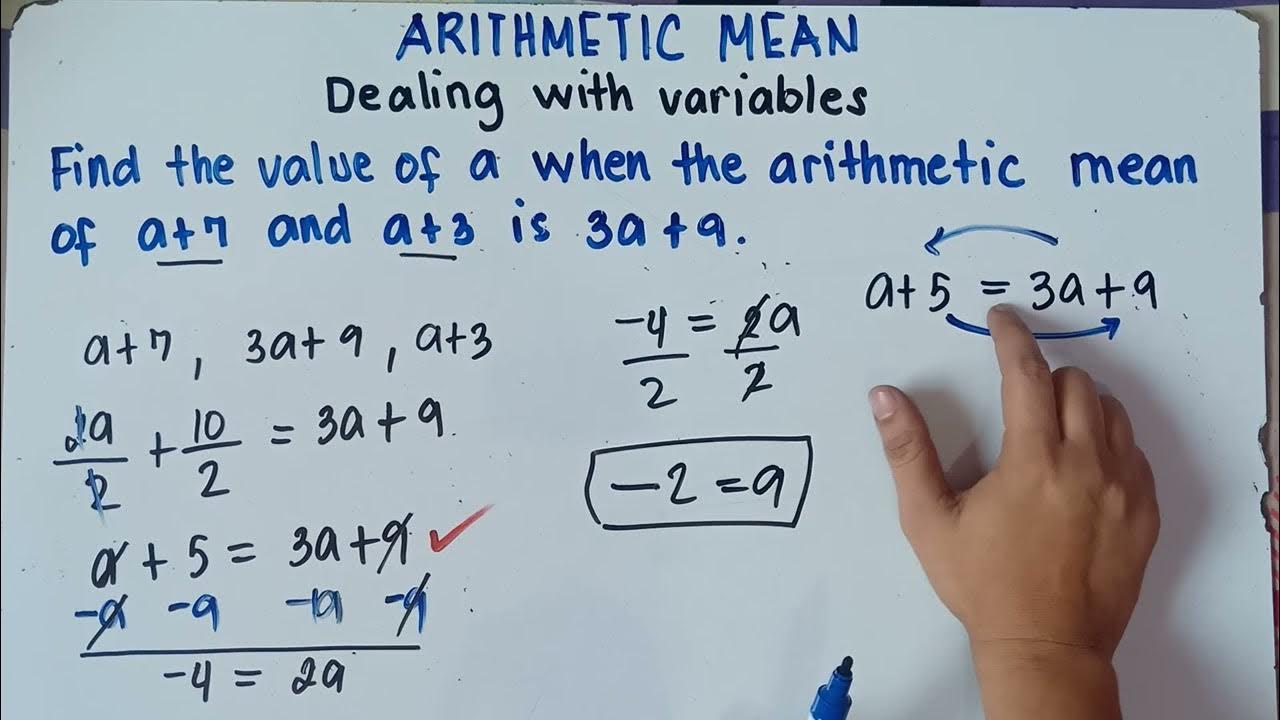 ARITHMETIC MEAN
Dealing with variables
Find the value of a when the arithmetic mean
of a+7 and a+3 is 3a+9.
a+7, 3a+9, a+3
2a/2 + 10/2 = 3a+9
a + 5 = 3a+9 ✓
-a -9 -a -9
-4 = 2a
-4/2 = 2a/2
-2 = a
a+5 = 3a+9